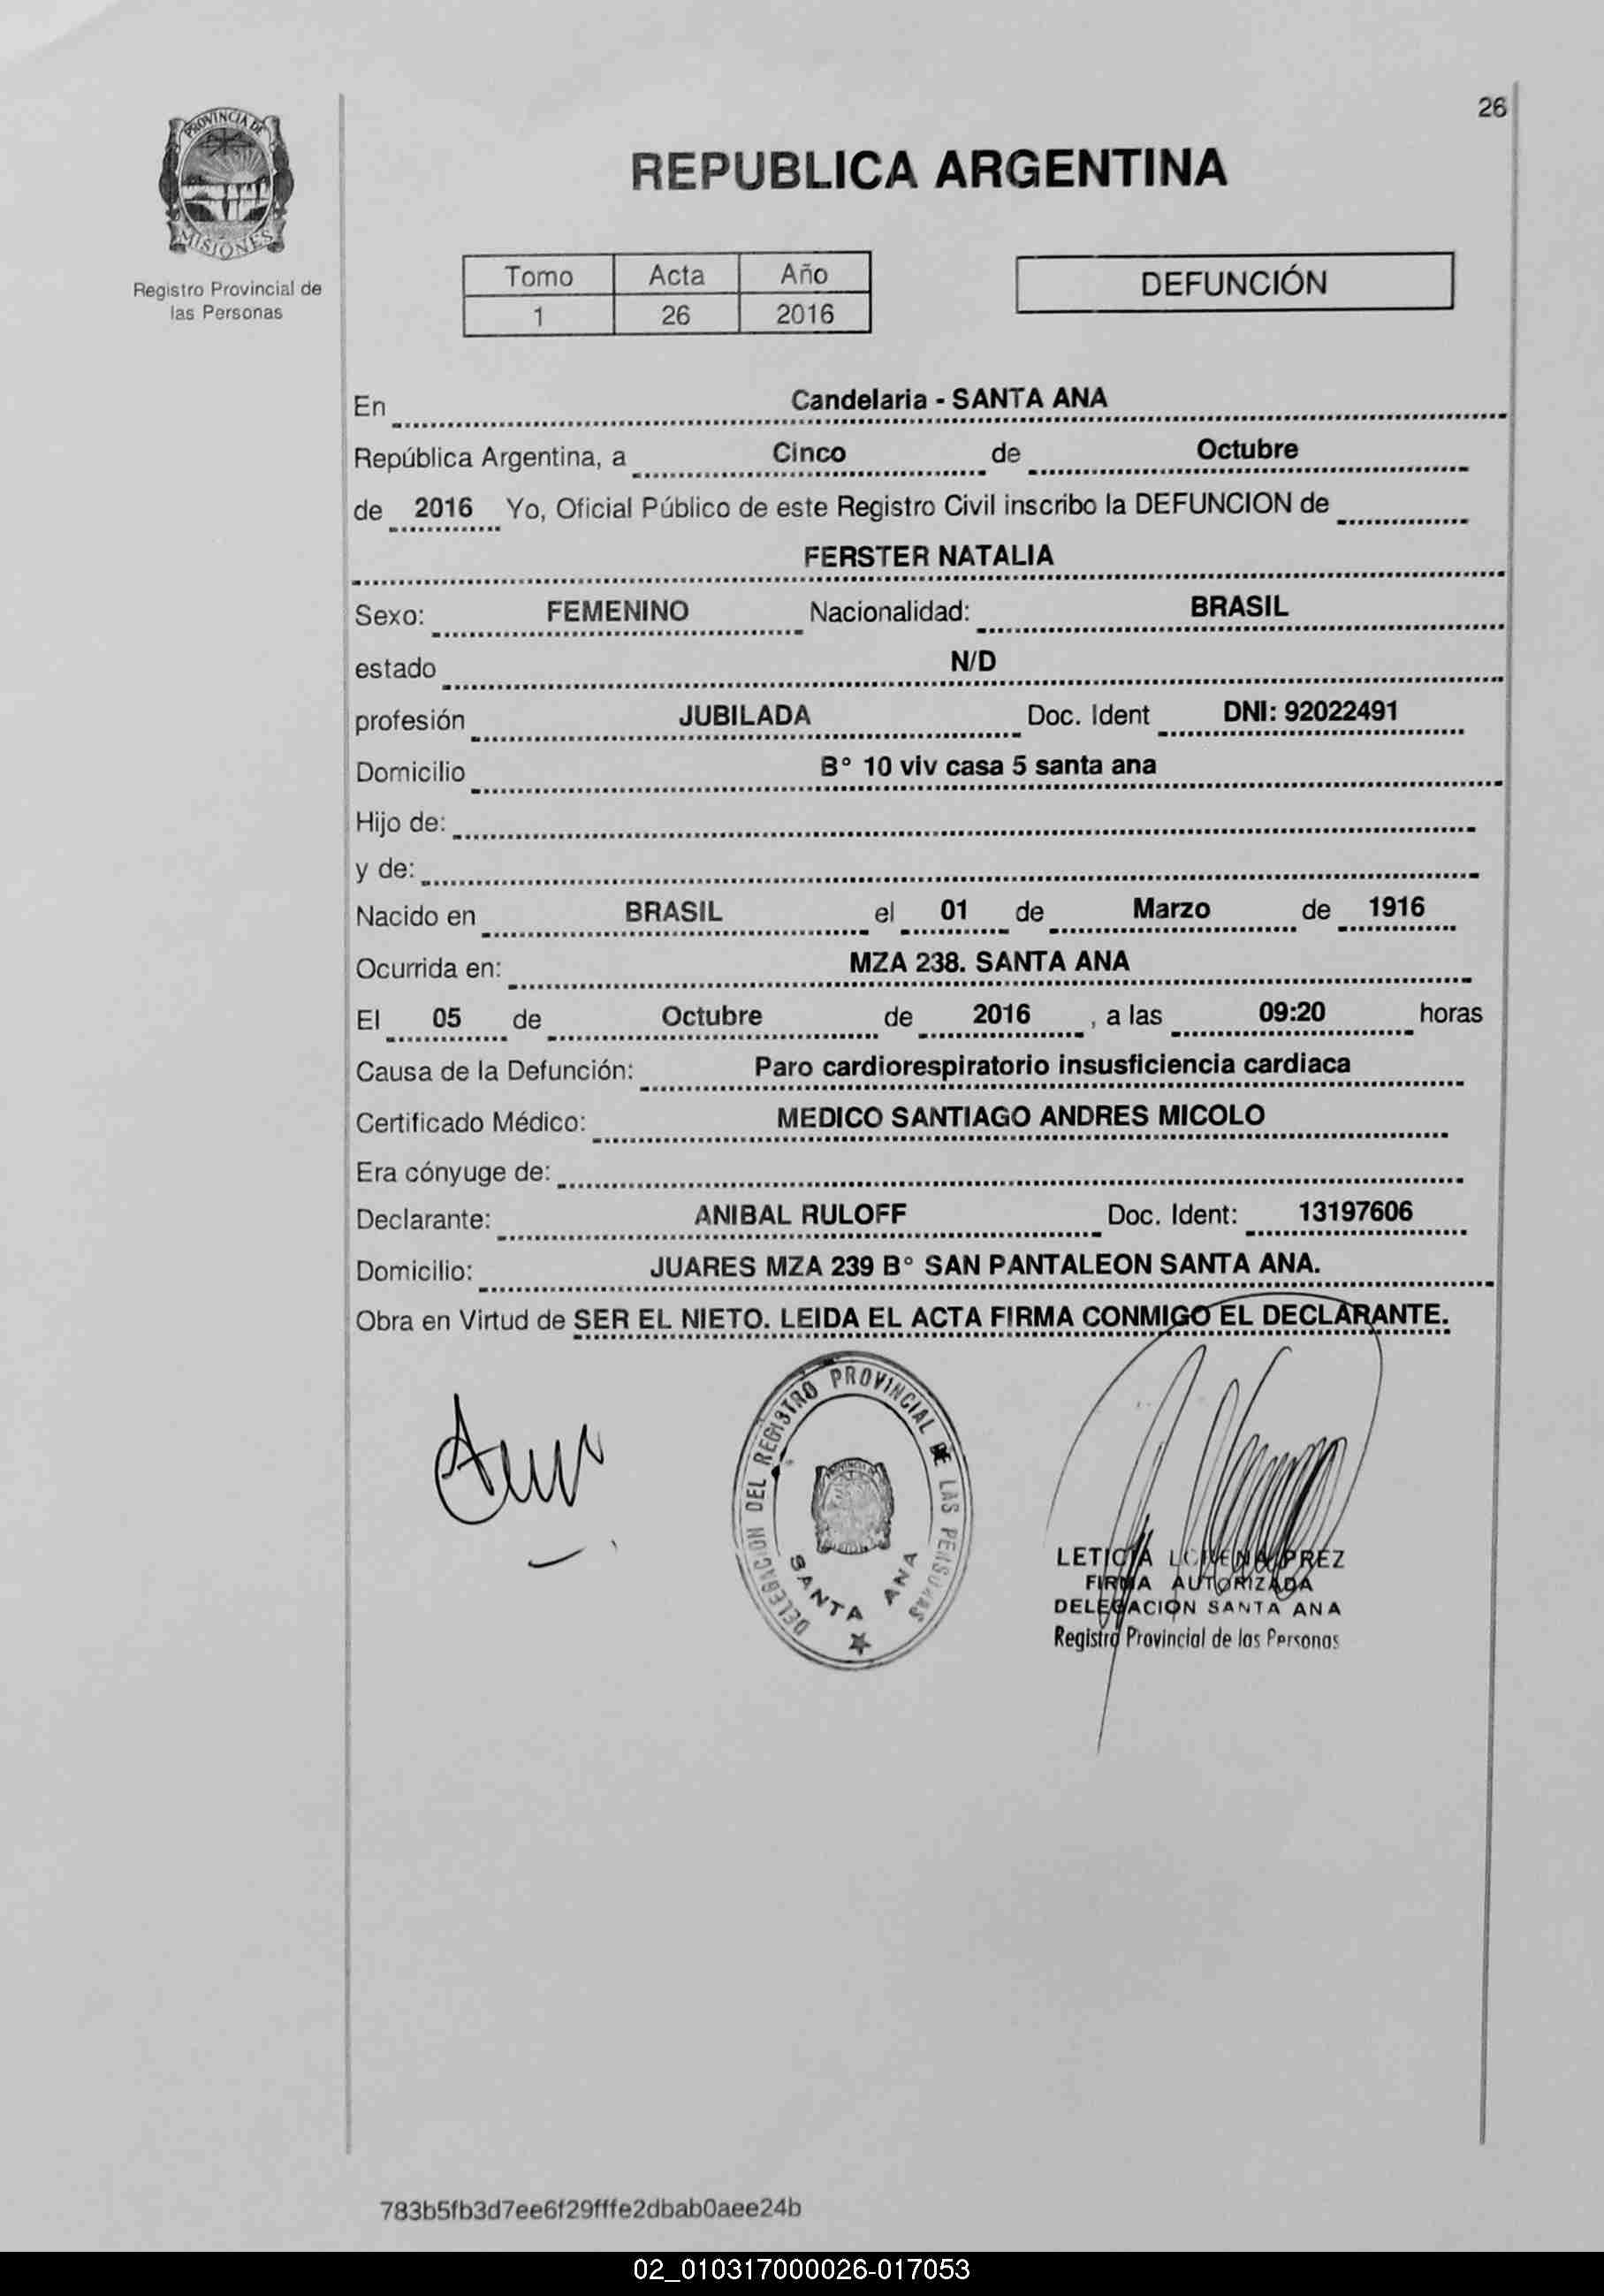 26
PROVINCIA DE
MISIONES
Registro Provincial de
las Personas
REPUBLICA ARGENTINA
Tomo Acta Año
1 26 2016
DEFUNCIÓN
En Candelaria - SANTA ANA
República Argentina, a Cinco de Octubre
de 2016 Yo, Oficial Público de este Registro Civil inscribo la DEFUNCION de
FERSTER NATALIA
Sexo: FEMENINO Nacionalidad: BRASIL
estado N/D
profesión JUBILADA Doc. Ident DNI: 92022491
Domicilio B° 10 viv casa 5 santa ana
Hijo de:
y de:
Nacido en BRASIL el 01 de Marzo de 1916
Ocurrida en: MZA 238. SANTA ANA
El 05 de Octubre de 2016 , a las 09:20 horas
Causa de la Defunción: Paro cardiorespiratorio insusficiencia cardiaca
Certificado Médico: MEDICO SANTIAGO ANDRES MICOLO
Era cónyuge de:
Declarante: ANIBAL RULOFF Doc. Ident: 13197606
Domicilio: JUARES MZA 239 B° SAN PANTALEON SANTA ANA.
Obra en Virtud de SER EL NIETO. LEIDA EL ACTA FIRMA CONMIGO EL DECLARANTE.
DELEGACION DEL REGISTRO PROVINCIAL DE LAS PERSONAS
SANTA ANA
LETICIA LORENA PREZ
FIRMA AUTORIZADA
DELEGACION SANTA ANA
Registro Provincial de las Personas
783b5fb3d7ee6f29fffe2dbab0aee24b
02_010317000026-017053